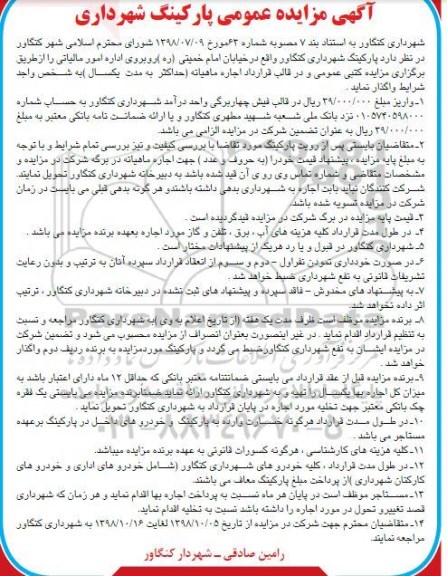 آگهی مزایده عمومی پارکینگ شهرداری
شهرداری کنگاور به استناد بند ۷ مصوبه شماره ۶۳مورخ ۱۳۹۸/۰۷/۰۹ شورای محترم اسلامی شهر کنگاور
در نظر دارد پارکینگ شهرداری کنگاور واقع درخیابان امام خمینی (ره )روبروی اداره امور مالیاتی را ازطریق
برگزاری مزایده کتبی عمومی و در قالب قرارداد اجاره ماهیانه (حداکثر به مدت یکسال )به شخص واجد
شرایط واگذار نماید .
۱-واریز مبلغ ۳۹/۰۰۰/۰۰۰ ریال در قالب فیش چهاربرگی واحد درآمد شهرداری کنگاور به حساب شماره
۰۱۰۵۷۴۰۵۹۸۰۰۰ نزد بانک ملی شعبه شهید مطهری کنگاور و یا ارائه ضمانت نامه بانکی معتبر به مبلغ
۳۹/۰۰۰/۰۰۰ ریال به عنوان تضمین شرکت در مزایده الزامی می باشد.
۲-متقاضیان بایستی پس از رویت پارکینگ مورد تقاضا با بررسی کیفیت و نیز بررسی تمام شرایط و با توجه
به مبلغ پایه مزایده ، پیشنهاد قیمت خودرا (به حروف و عدد ) جهت اجاره ماهیانه در برگه شرکت در مزایده و
مشخصات متقاضی و شماره تماس وی روی آن قید شده باشد به دبیرخانه شهرداری کنگاور تحویل نمایند.
شرکت کنندگان نباید بابت اجاره به شهرداری بدهی داشته باشندو هر گونه بدهی قبلی می بایست در زمان
شرکت در مزایده تسویه شده باشد.
۳-قیمت پایه مزایده در برگ شرکت در مزایده قیدگردیده است .
۴- در طول مدت قرارداد کلیه هزینه های آب ، برق ، تلفن و گاز مورد اجاره بعهده برنده مزایده می باشد .
۵-شهرداری کنگاور در قبول و یا رد هریک از پیشنهادات مختار است .
۶-در صورت خودداری نمودن نفراول – دوم و سوم از انعقاد قرارداد سپرده آنان به ترتیب و بدون رعایت
تشریفات قانونی به نفع شهرداری ضبط خواهد شد .
۷-به پیشنهاد های مخدوش – فاقد سپرده و پیشنهاد های ثبت نشده در دبیرخانه شهرداری کنگاور ، ترتیب
اثر داده نخواهد شد.
۸- برنده مزایده موظف است ظرف مدت یک هفته (از تاریخ اعلام به وی )به شهرداری کنگاور مراجعه و نسبت
به تنظیم قرارداد اقدام نماید . در غیر اینصورت بعنوان انصراف از مزایده محسوب می شود و تضمین شرکت
در مزایده ایشان به نفع شهرداری کنگاورضبط می گردد و پارکینگ موردمزایده به برنده ردیف دوم واگذار
خواهد شد .
۹-برنده مزایده قبل از عقد قرارداد می بایستی ضمانتنامه معتبر بانکی که حداقل ۱۲ ماه دارای اعتبار باشد به
میزان کل اجاره بها یکسال را تهیه و به شهرداری کنگاور ارائه نماید ضمنابرنده مزایده می بایستی یک فقره
چک بانکی معتبر جهت تخلیه مورد اجاره در پایان قرارداد به شهرداری کنگاور تحویل نماید .
۱۰-در طول مدت قرارداد هرگونه خسارت وارده به پارکینگ و خودرو های داخل در پارکینگ برعهده
مستاجر می باشد .
۱۱-کلیه هزینه های کارشناسی ، هرگونه کسورات قانونی به عهده برنده مزایده میباشد.
۱۲-در طول مدت قرارداد ، کلیه خودرو های شهرداری کنگاور (شامل خودرو های اداری و خودرو های
کارکنان شهرداری )از پرداخت مبلغ پارکینگ معاف می باشند.
۱۳-مستاجر موظف است در پایان هر ماه نسبت به پرداخت اجاره بها اقدام نماید و هر زمان که شهرداری
قصد تغییرو تحول در مورد اجاره را داشته باشد نسبت به تخلیه اقدام نماید.
۱۴-متقاضیان محترم جهت شرکت در مزایده از تاریخ ۱۳۹۸/۱۰/۰۵ لغایت ۱۳۹۸/۱۰/۱۶ به شهرداری کنگاور
مراجعه نمایند.
رامین صادقی – شهردار کنگاور